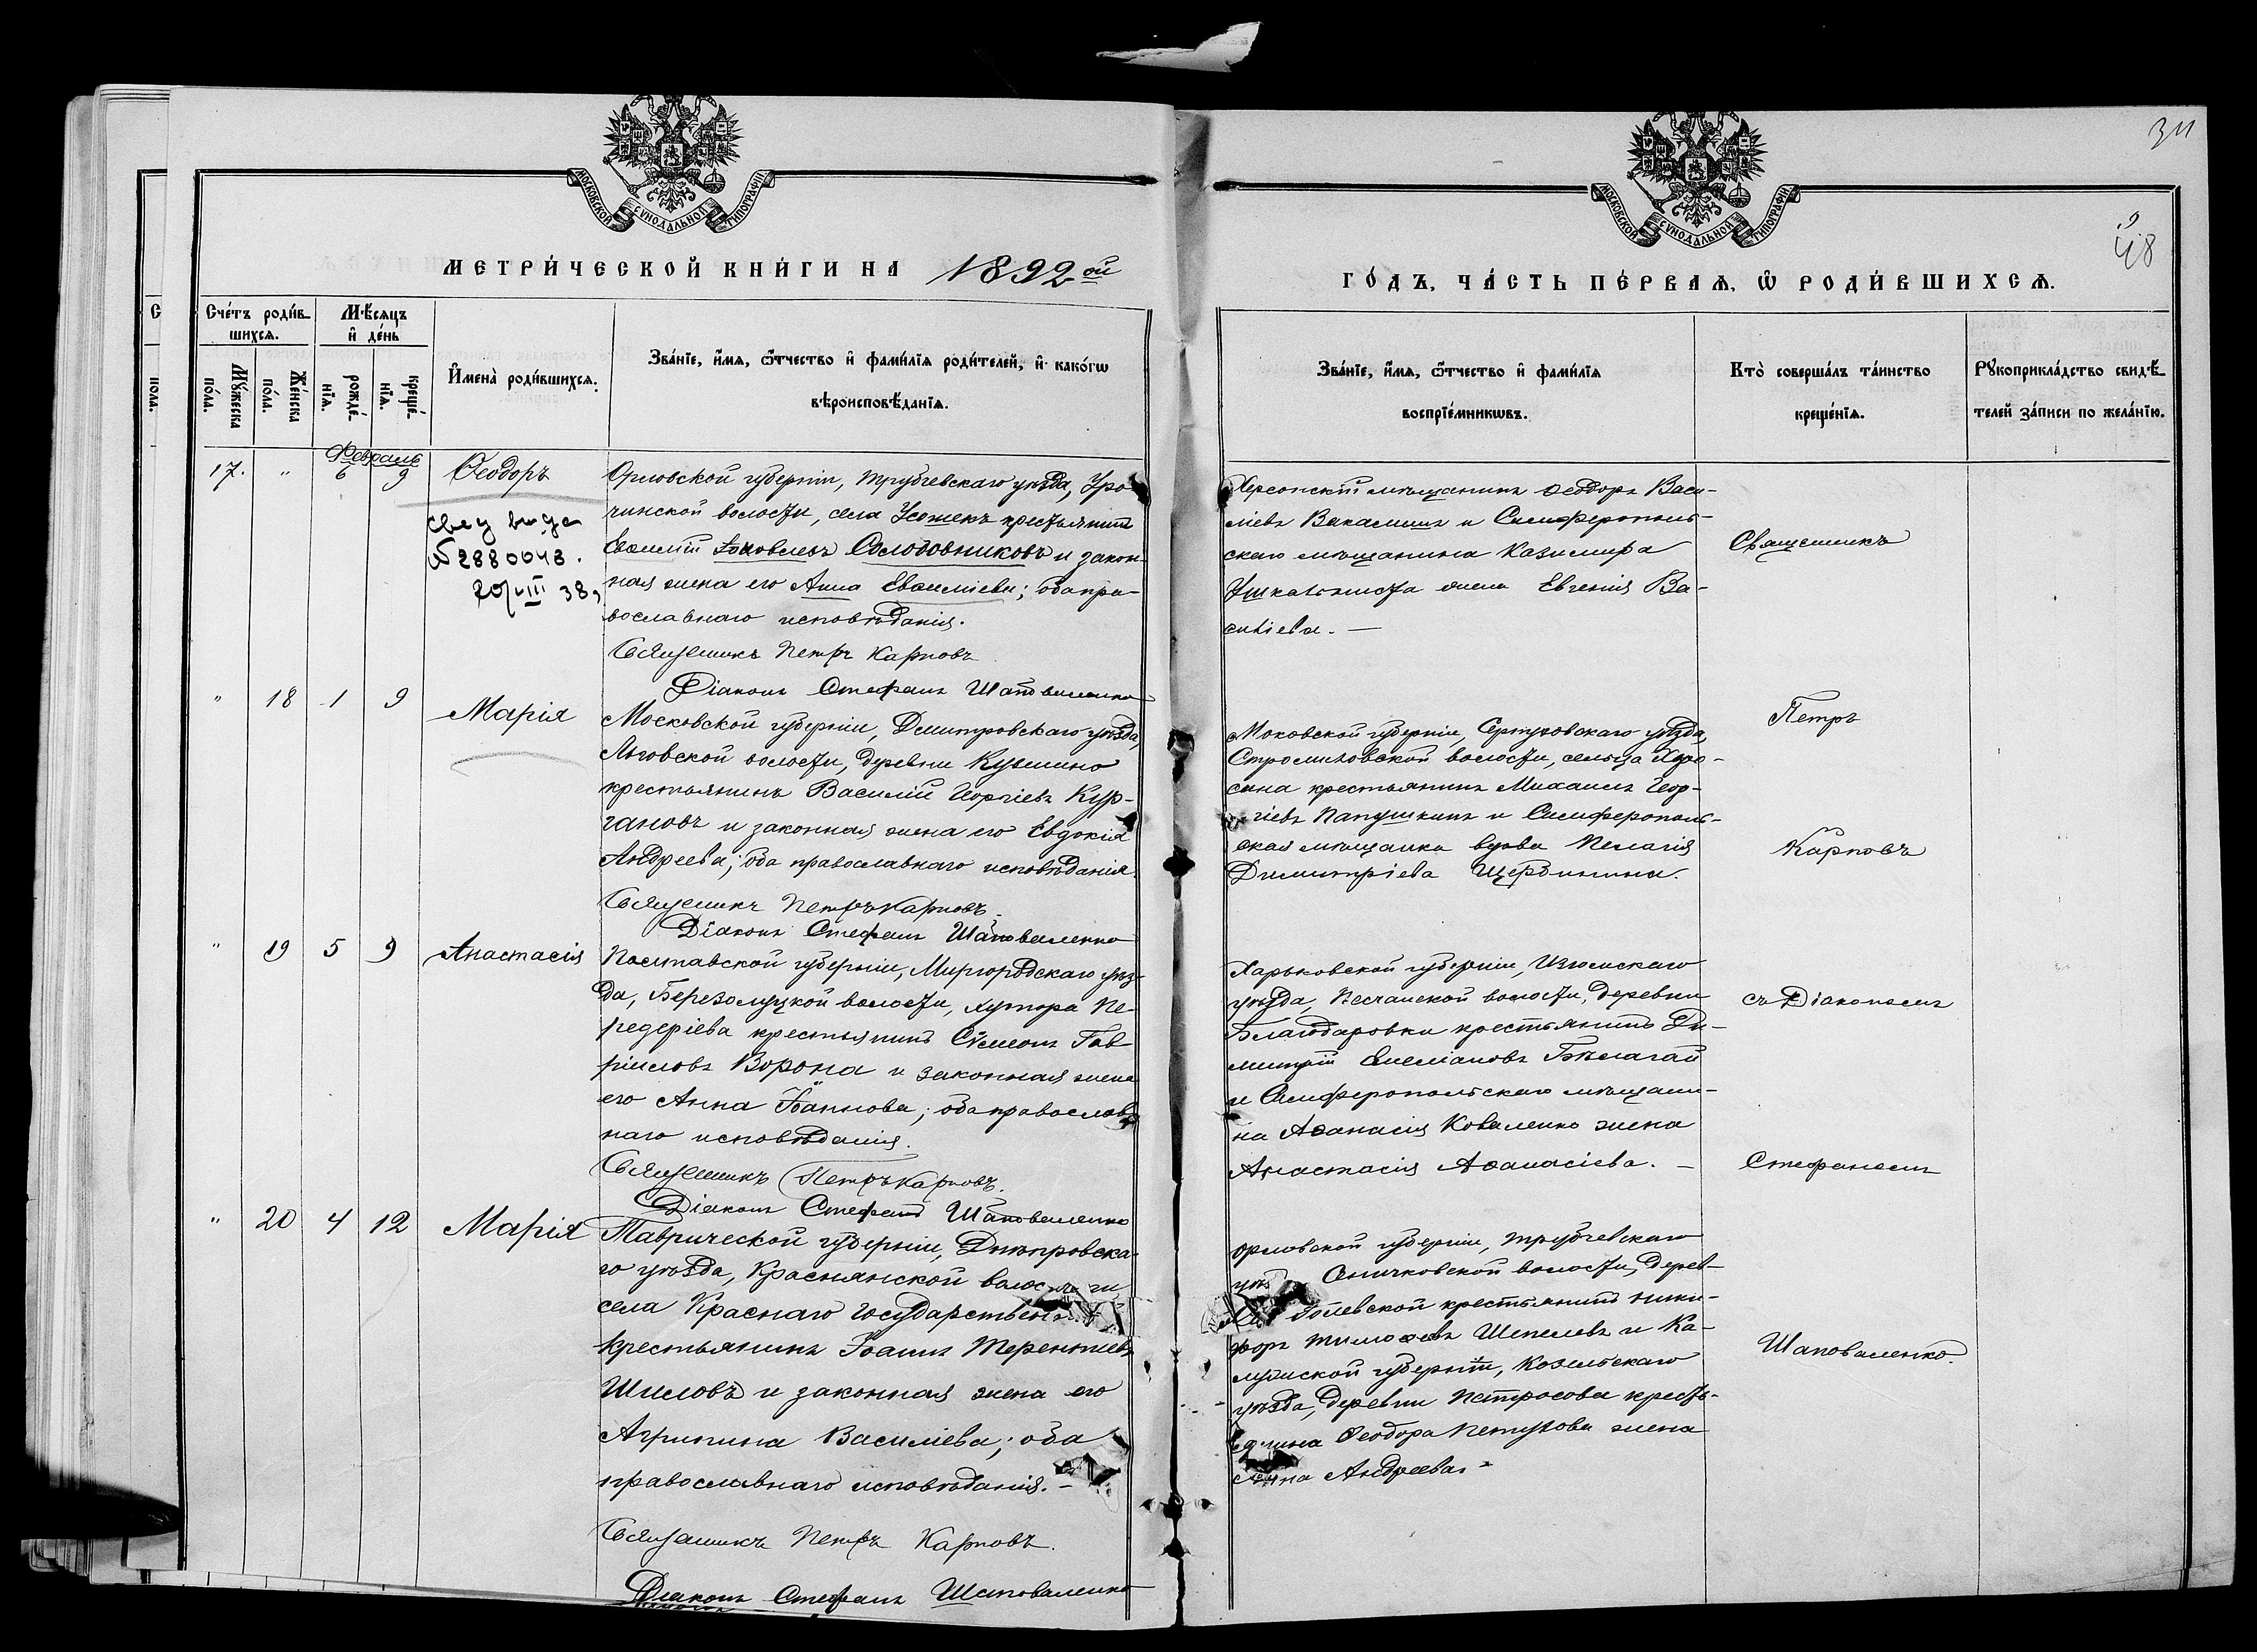 МОСКОВСКОЙ СѴНОДАЛЬНОЙ ТИПОГРАФІИ
МЕТРИ́ЧЕСКОЙ КНИ́ГИ НА 1892ой
Сче́тъ роди́в-
шихсѧ.
Мѣ́сѧцъ
и҆ де́нь
Мꙋ́жеска по́ла.
Же́нска по́ла.
рожде́-нїѧ.
креще́-нїѧ.
И҆мена̀ роди́вшихсѧ.
Зва́нїе, и҆́мѧ, ѻ҆́тчество и҆ фами́лїѧ роди́телей, и҆ како́гѡ
вѣроисповѣ́данїѧ.
Февраль
17. " 6 9 Ѳеодоръ
Свид выда
№ 2880043.
20/VIII 38,
Орловской губерніи, Трубчевскаго уѣзда, Уро-
чинской волости, села Усожекъ крестьянинъ
Евѳимій Іаковлевъ Солодовниковъ и закон-
ная жена его Анна Евѳиміева; оба пра-
вославнаго исповѣданія.
Священникъ Петръ Карповъ
Діаконъ Стефанъ Шаповаленко
" 18 1 9 Марія
Московской губерніи, Дмитровскаго уѣзда,
волости, деревни Кузмино
крестьянинъ Василій Георгіевъ Кур-
гановъ и законная жена его Евдокія
Андреева; оба православнаго исповѣданія.
Священникъ Петръ Карповъ.
Діаконъ Стефанъ Шаповаленко
" 19 5 9 Анастасія
Полтавской губерніи, Миргородскаго уѣз-
да, Березолуцкой волости, хутора Пе-
редеріева крестьянинъ Сѵмеонъ Гав-
ріиловъ Ворона и законная жена
его Анна Іоаннова; оба православ-
наго исповѣданія.
Священникъ Петръ Карповъ.
Діаконъ Стефанъ Шаповаленко
" 20 4 12 Марія
Таврической губерніи, Днѣпровска-
го уѣзда, Краснянской волости
села Краснаго государствен.
крестьянинъ Іоаннъ Терентіевъ
Шиловъ и законная жена его
Агрипина Василіева; оба
православнаго исповѣданія.-
Священникъ Петръ Карповъ.
Діаконъ Стефанъ Шаповаленко
МОСКОВСКОЙ СѴНОДАЛЬНОЙ ТИПОГРАФІИ
48
ГО́ДЪ, ЧА́СТЬ ПЕ́РВАѦ, Ѽ РОДИ́ВШИХСѦ.
Зва́нїе, и҆́мѧ, ѻ҆́тчество и҆ фами́лїѧ
воспрїе́мникѡвъ.
Кто̀ соверша́лъ та́инство
креще́нїѧ.
Рꙋкоприкла́дство свидѣ́-
телей за́писи по жела́нїю.
Херсонскій мѣщанинъ Ѳеодоръ Васи-
ліевъ и Симферополь-
скаго мѣщанина Казимира
жена Евгенія Ва-
силіева. —
Московской губерніи, Серпуховскаго уѣзда,
Стромиловской волости, сельца
крестьянинъ Михаилъ Геор-
гіевъ Папушкинъ и Симферополь-
ская мѣщанка вдова Пелагія
Димитріева Щербинина.
Харьковской губерніи, Изюмскаго
уѣзда, Песчанской волости, деревни
Благодаровки крестьянинъ Ди-
митрій Емеліановъ
и Симферопольскаго мѣщани-
на Аѳанасія Коваленко жена
Анастасія Аѳанасіева. —
Орловской губерніи, Трубчевскаго
уѣз волости, дерев-
крестьянинъ Ники-
форъ Тимоѳеевъ Шепелевъ и Ка-
лужской губерніи, Козельскаго
уѣзда, деревни Петросова кресть-
янина Ѳеодора Петухова жена
Анна Андреева.-
Священникъ
Петръ
Карповъ
съ Діакономъ
Стефаномъ
Шаповаленко.